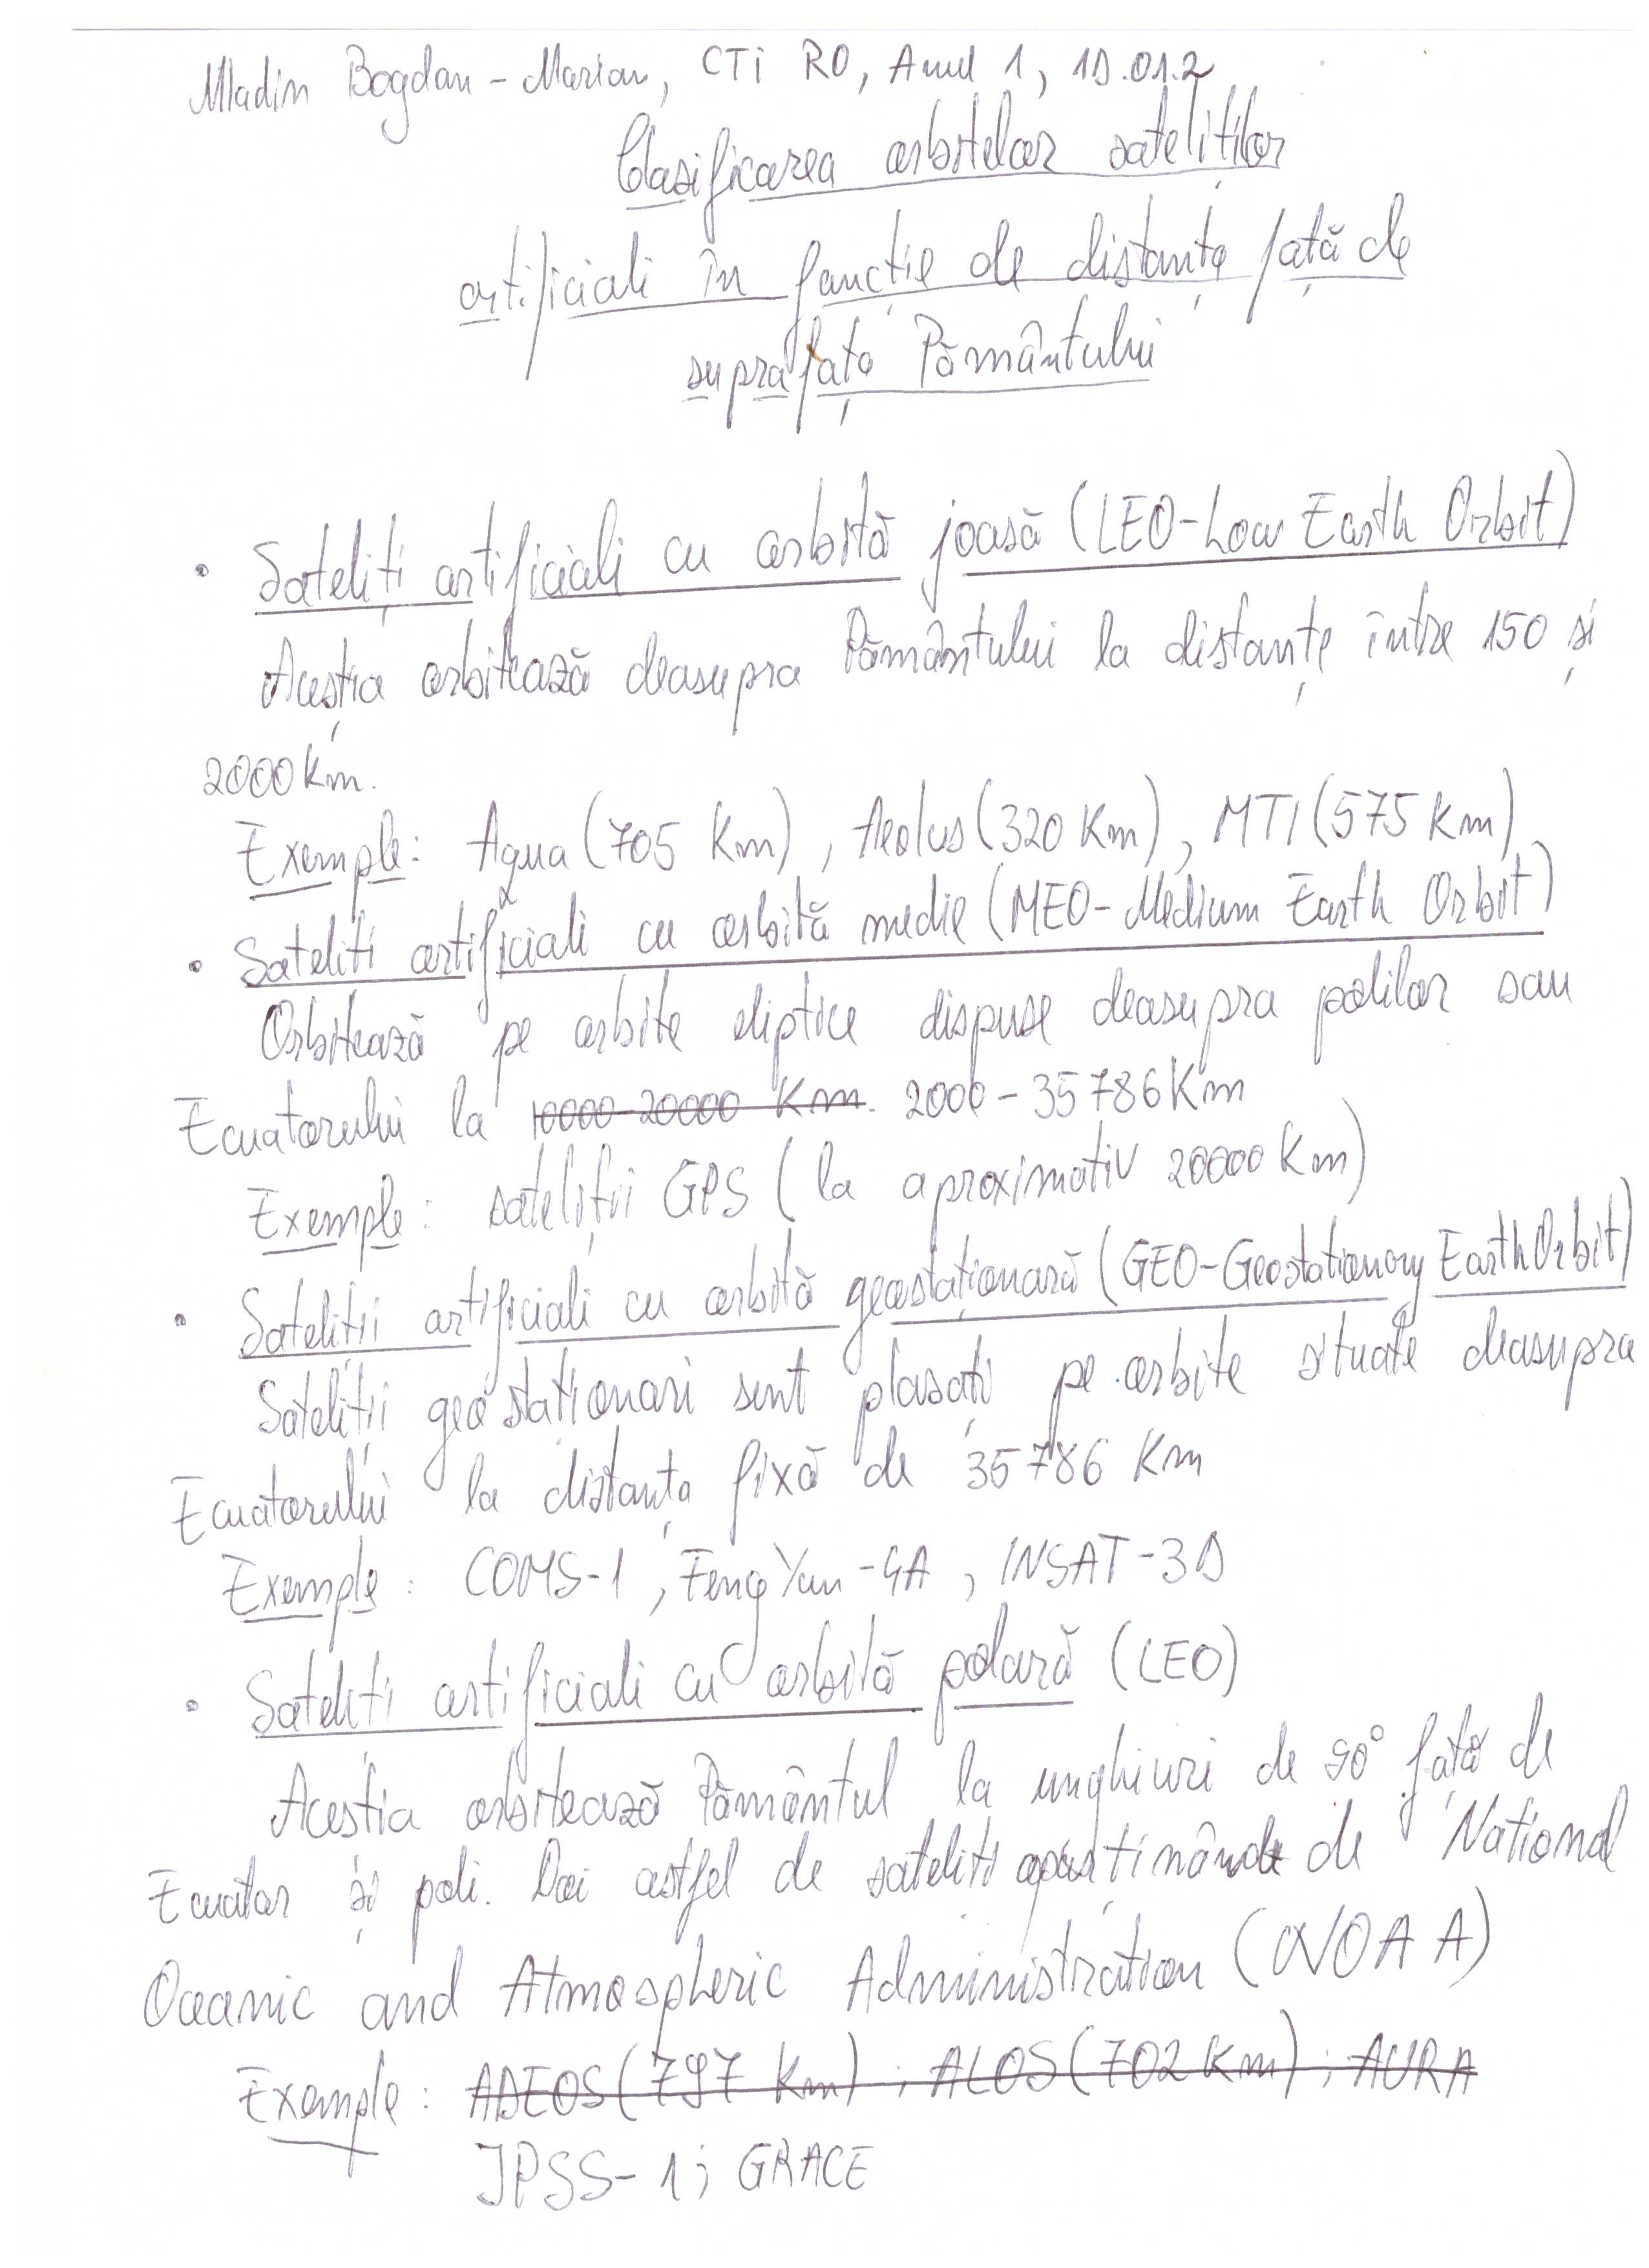 Mladin Bogdan-Marian, CTI RO, Anul 1, 1D.01.2
Clasificarea orbitelor sateliților
artificiali în funcție de distanța față de
suprafața Pământului
• Sateliți artificiali cu orbită joasă (LEO-Low Earth Orbit)
Aceștia orbitează deasupra Pământului la distanțe între 150 și
2000 Km.
Exemple: Aqua (705 Km), Aeolus (320 Km), MTI (575 Km)
• Sateliți artificiali cu orbită medie (MEO-Medium Earth Orbit)
Orbitează pe orbite eliptice dispuse deasupra polilor sau
Ecuatorului la 10000-20000 Km. 2000-35786 Km
Exemple: sateliții GPS (la aproximativ 20000 Km)
• Sateliții artificiali cu orbită geostaționară (GEO-Geostationary Earth Orbit)
Sateliții geostaționari sunt plasați pe orbite situate deasupra
Ecuatorului la distanța fixă de 35786 Km
Exemple: COMS-1, FengYun-4A, INSAT-3D
• Sateliți artificiali cu orbită polară (LEO)
Aceștia orbitează Pământul la unghiuri de 90° față de
Ecuator și poli. Doi astfel de sateliți aparținând de National
Oceanic and Atmospheric Administration (NOAA)
Exemple: ADEOS (797 Km); ALOS (702 Km); AURA
JPSS-1; GRACE